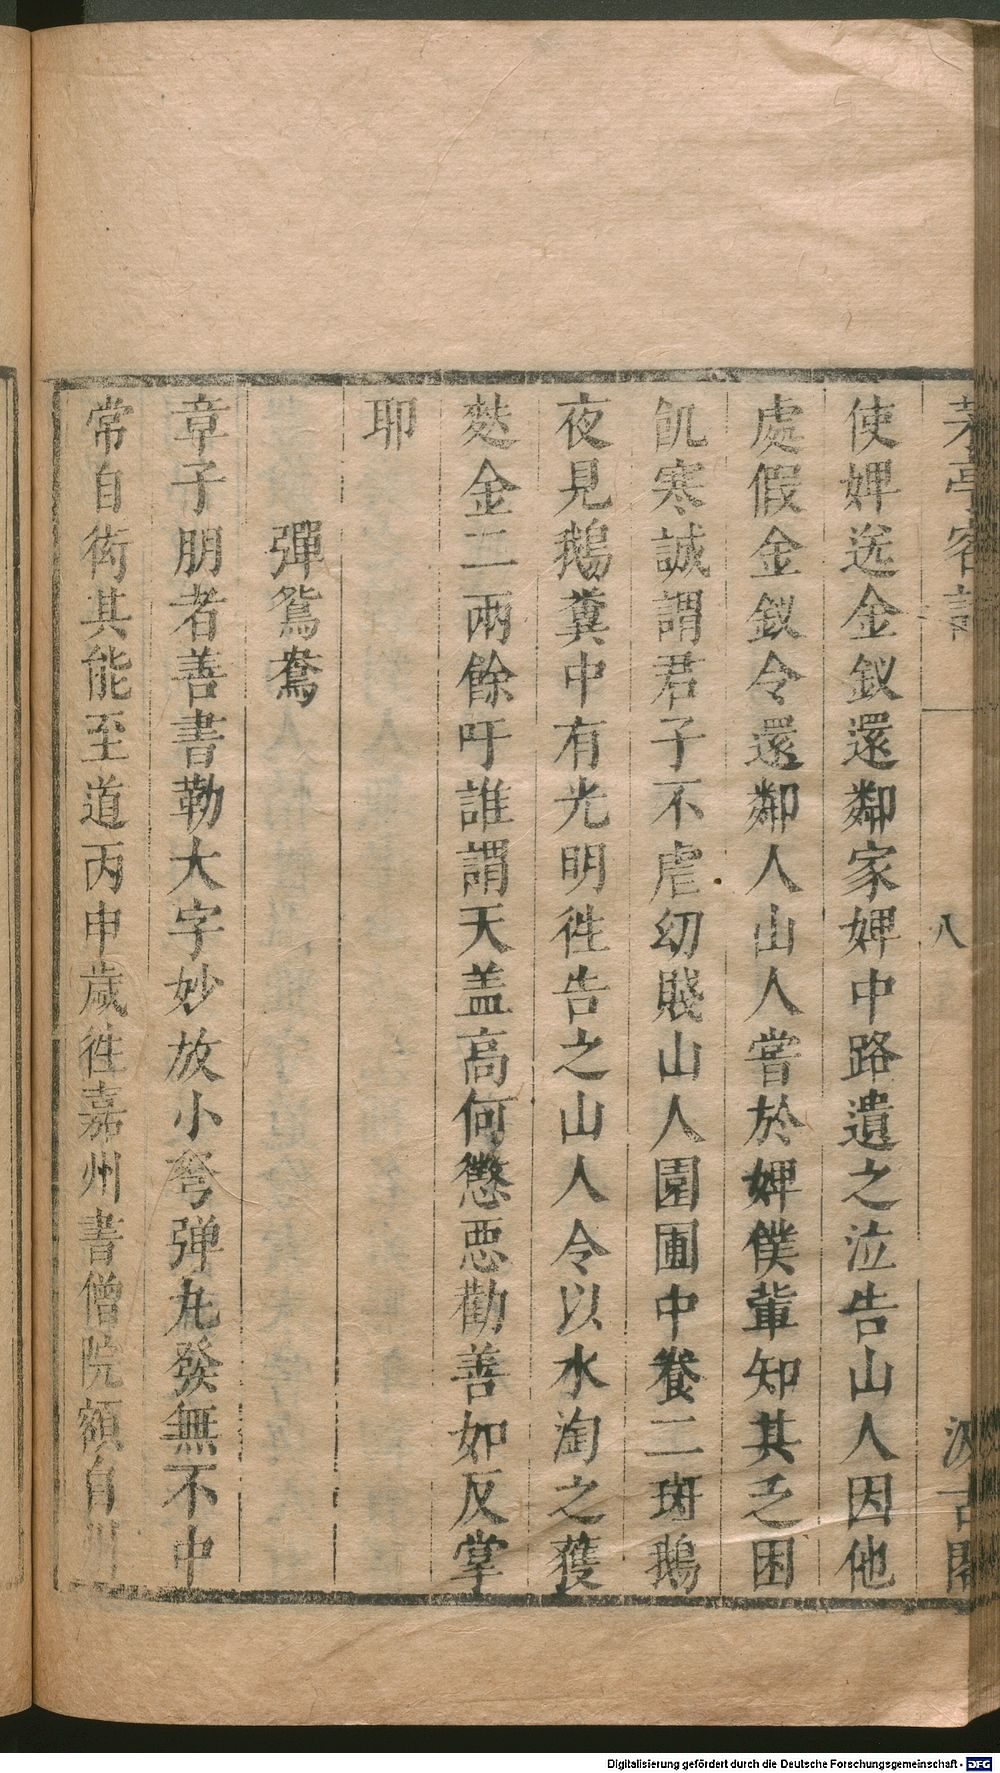 茅亭客話
八
汲古閣
使婢送金釵還鄰家婢中路遺之泣告山人因他
處假金釵令還鄰人山人嘗於婢僕輩知其乏困
飢寒誠謂君子不虐幼賤山人園圃中養二斑鵝
夜見鵝糞中有光明徃告之山人令以水淘之獲
麩金二兩餘吁誰謂天盖高何懲惡勸善如反掌
耶
彈鴛鴦
章子朋者善書勒大字妙放小弩弹丸發無不中
常自衒其能至道丙申歲徃嘉州書僧院額自州
Digitalisierung gefördert durch die Deutsche Forschungsgemeinschaft - DFG